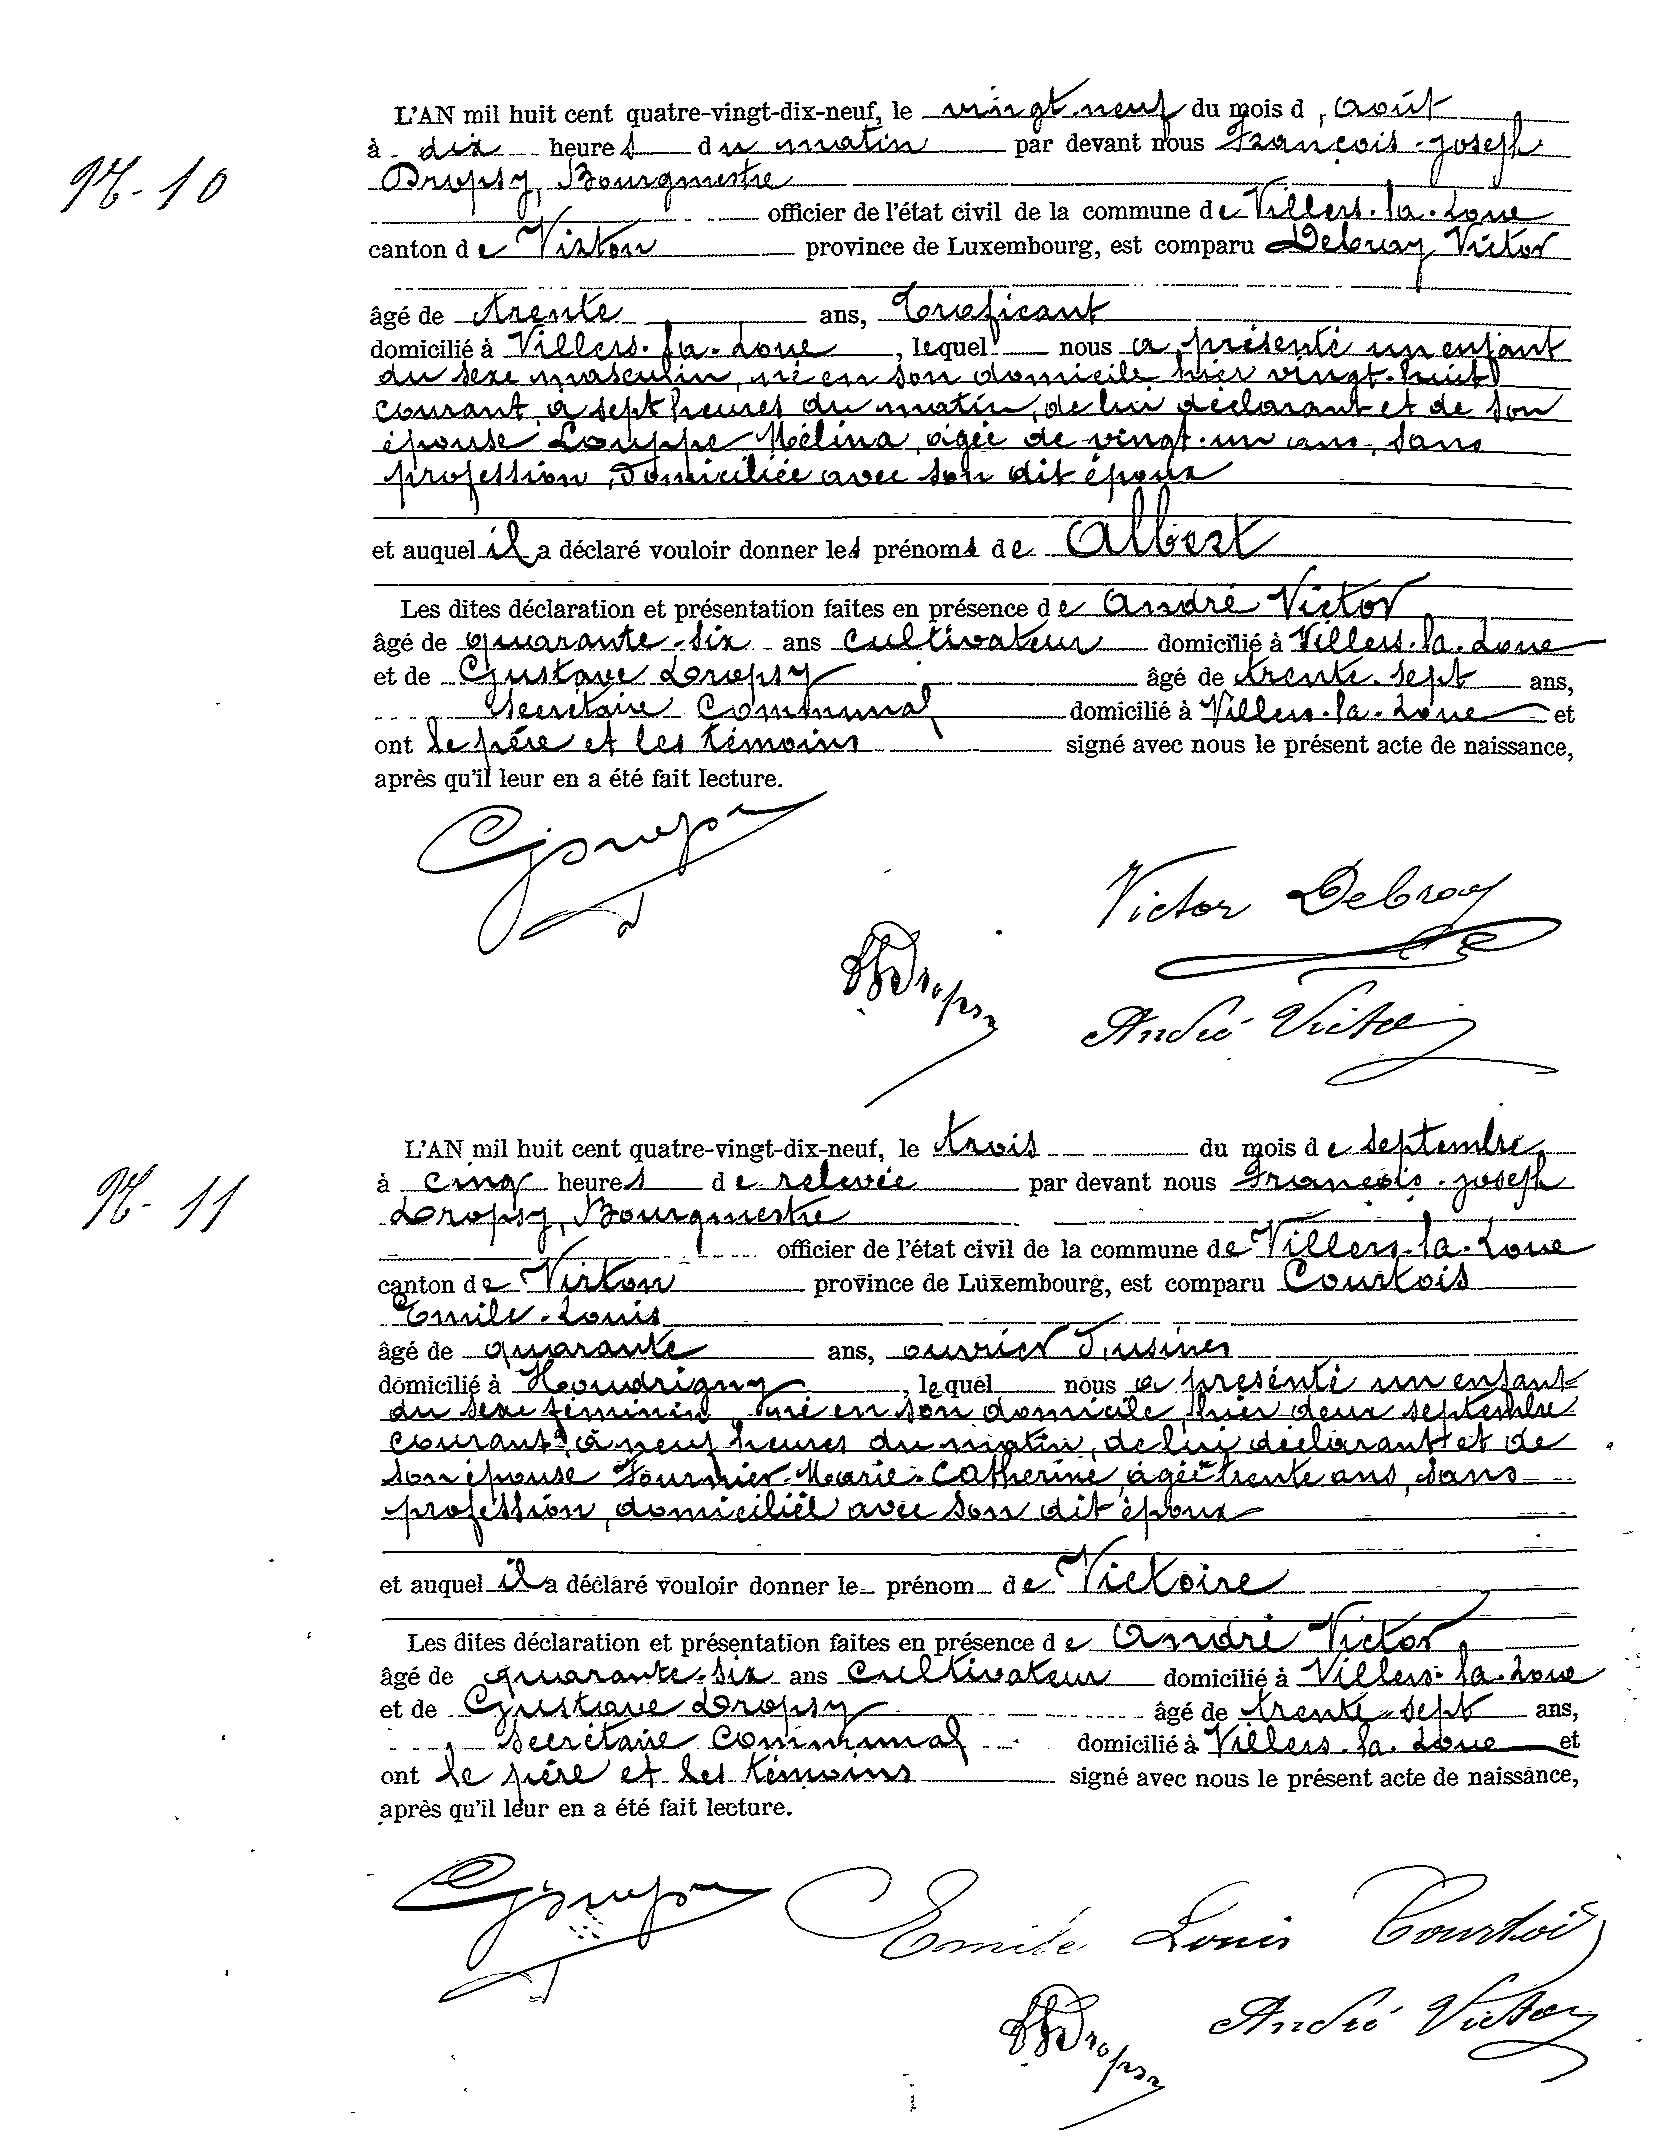 N. 10
L'AN mil huit cent quatre-vingt-dix-neuf, le vingt neuf du mois d'août
à dix heures du matin par devant nous François-Joseph
Dropsy, Bourgmestre
officier de l'état civil de la commune de Villers-la-Loue
canton de Virton province de Luxembourg, est comparu Debroy Victor
âgé de trente ans, Traficant
domicilié à Villers-la-Loue, lequel nous a présenté un enfant
du sexe masculin, né en son domicile hier vingt-huit
courant, à sept heures du matin, de lui déclarant et de son
épouse Louppe Mélina, âgée de vingt-un ans, sans
profession, domiciliée avec son dit époux
et auquel il a déclaré vouloir donner les prénoms de Albert
Les dites déclaration et présentation faites en présence de André Victor
âgé de quarante-six ans cultivateur domicilié à Villers-la-Loue
et de Gustave Dropsy âgé de trente-sept ans,
Secrétaire Communal domicilié à Villers-la-Loue et
ont le père et les témoins signé avec nous le présent acte de naissance,
après qu'il leur en a été fait lecture.
GDropsy
Victor Debroy
Dropsy
André Victor
N. 11
L'AN mil huit cent quatre-vingt-dix-neuf, le trois du mois de septembre
à cinq heures de relevée par devant nous François-Joseph
Dropsy, Bourgmestre
officier de l'état civil de la commune de Villers-la-Loue
canton de Virton province de Luxembourg, est comparu Courtois
Emile-Louis
âgé de quarante ans, ouvrier d'usines
domicilié à Houdrigny, lequel nous a présenté un enfant
du sexe féminin, né en son domicile, hier deux septembre
courant, à neuf heures du matin, de lui déclarant et de
son épouse Fournier-Marie-Catherine, âgée trente ans, sans
profession, domiciliée avec son dit époux
et auquel il a déclaré vouloir donner le prénom de Victoire
Les dites déclaration et présentation faites en présence de André Victor
âgé de quarante-six ans cultivateur domicilié à Villers-la-Loue
et de Gustave Dropsy âgé de trente-sept ans,
Secrétaire Communal domicilié à Villers-la-Loue et
ont le père et les témoins signé avec nous le présent acte de naissance,
après qu'il leur en a été fait lecture.
GDropsy
Emile Louis Courtois
André Victor
Dropsy